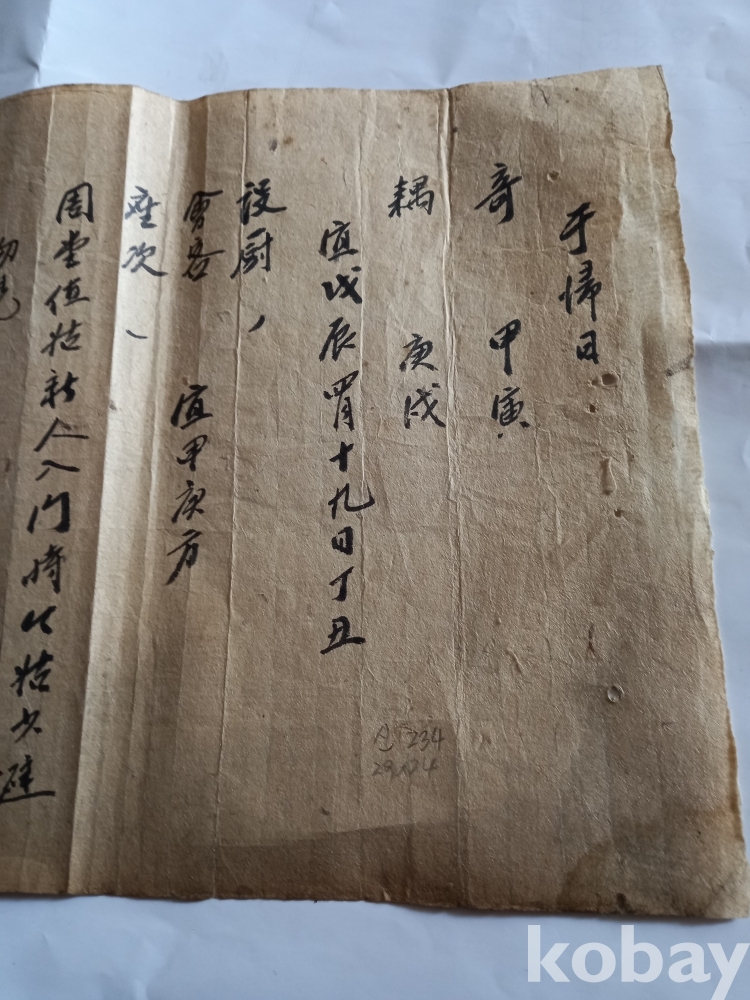 于帰日
奇 甲寅
耦 庚戌
宜戊辰四月十九日丁丑
設厨、
會客 宜甲庚方
座次、
周堂值姑新人入門時以姑少避
234
kobay